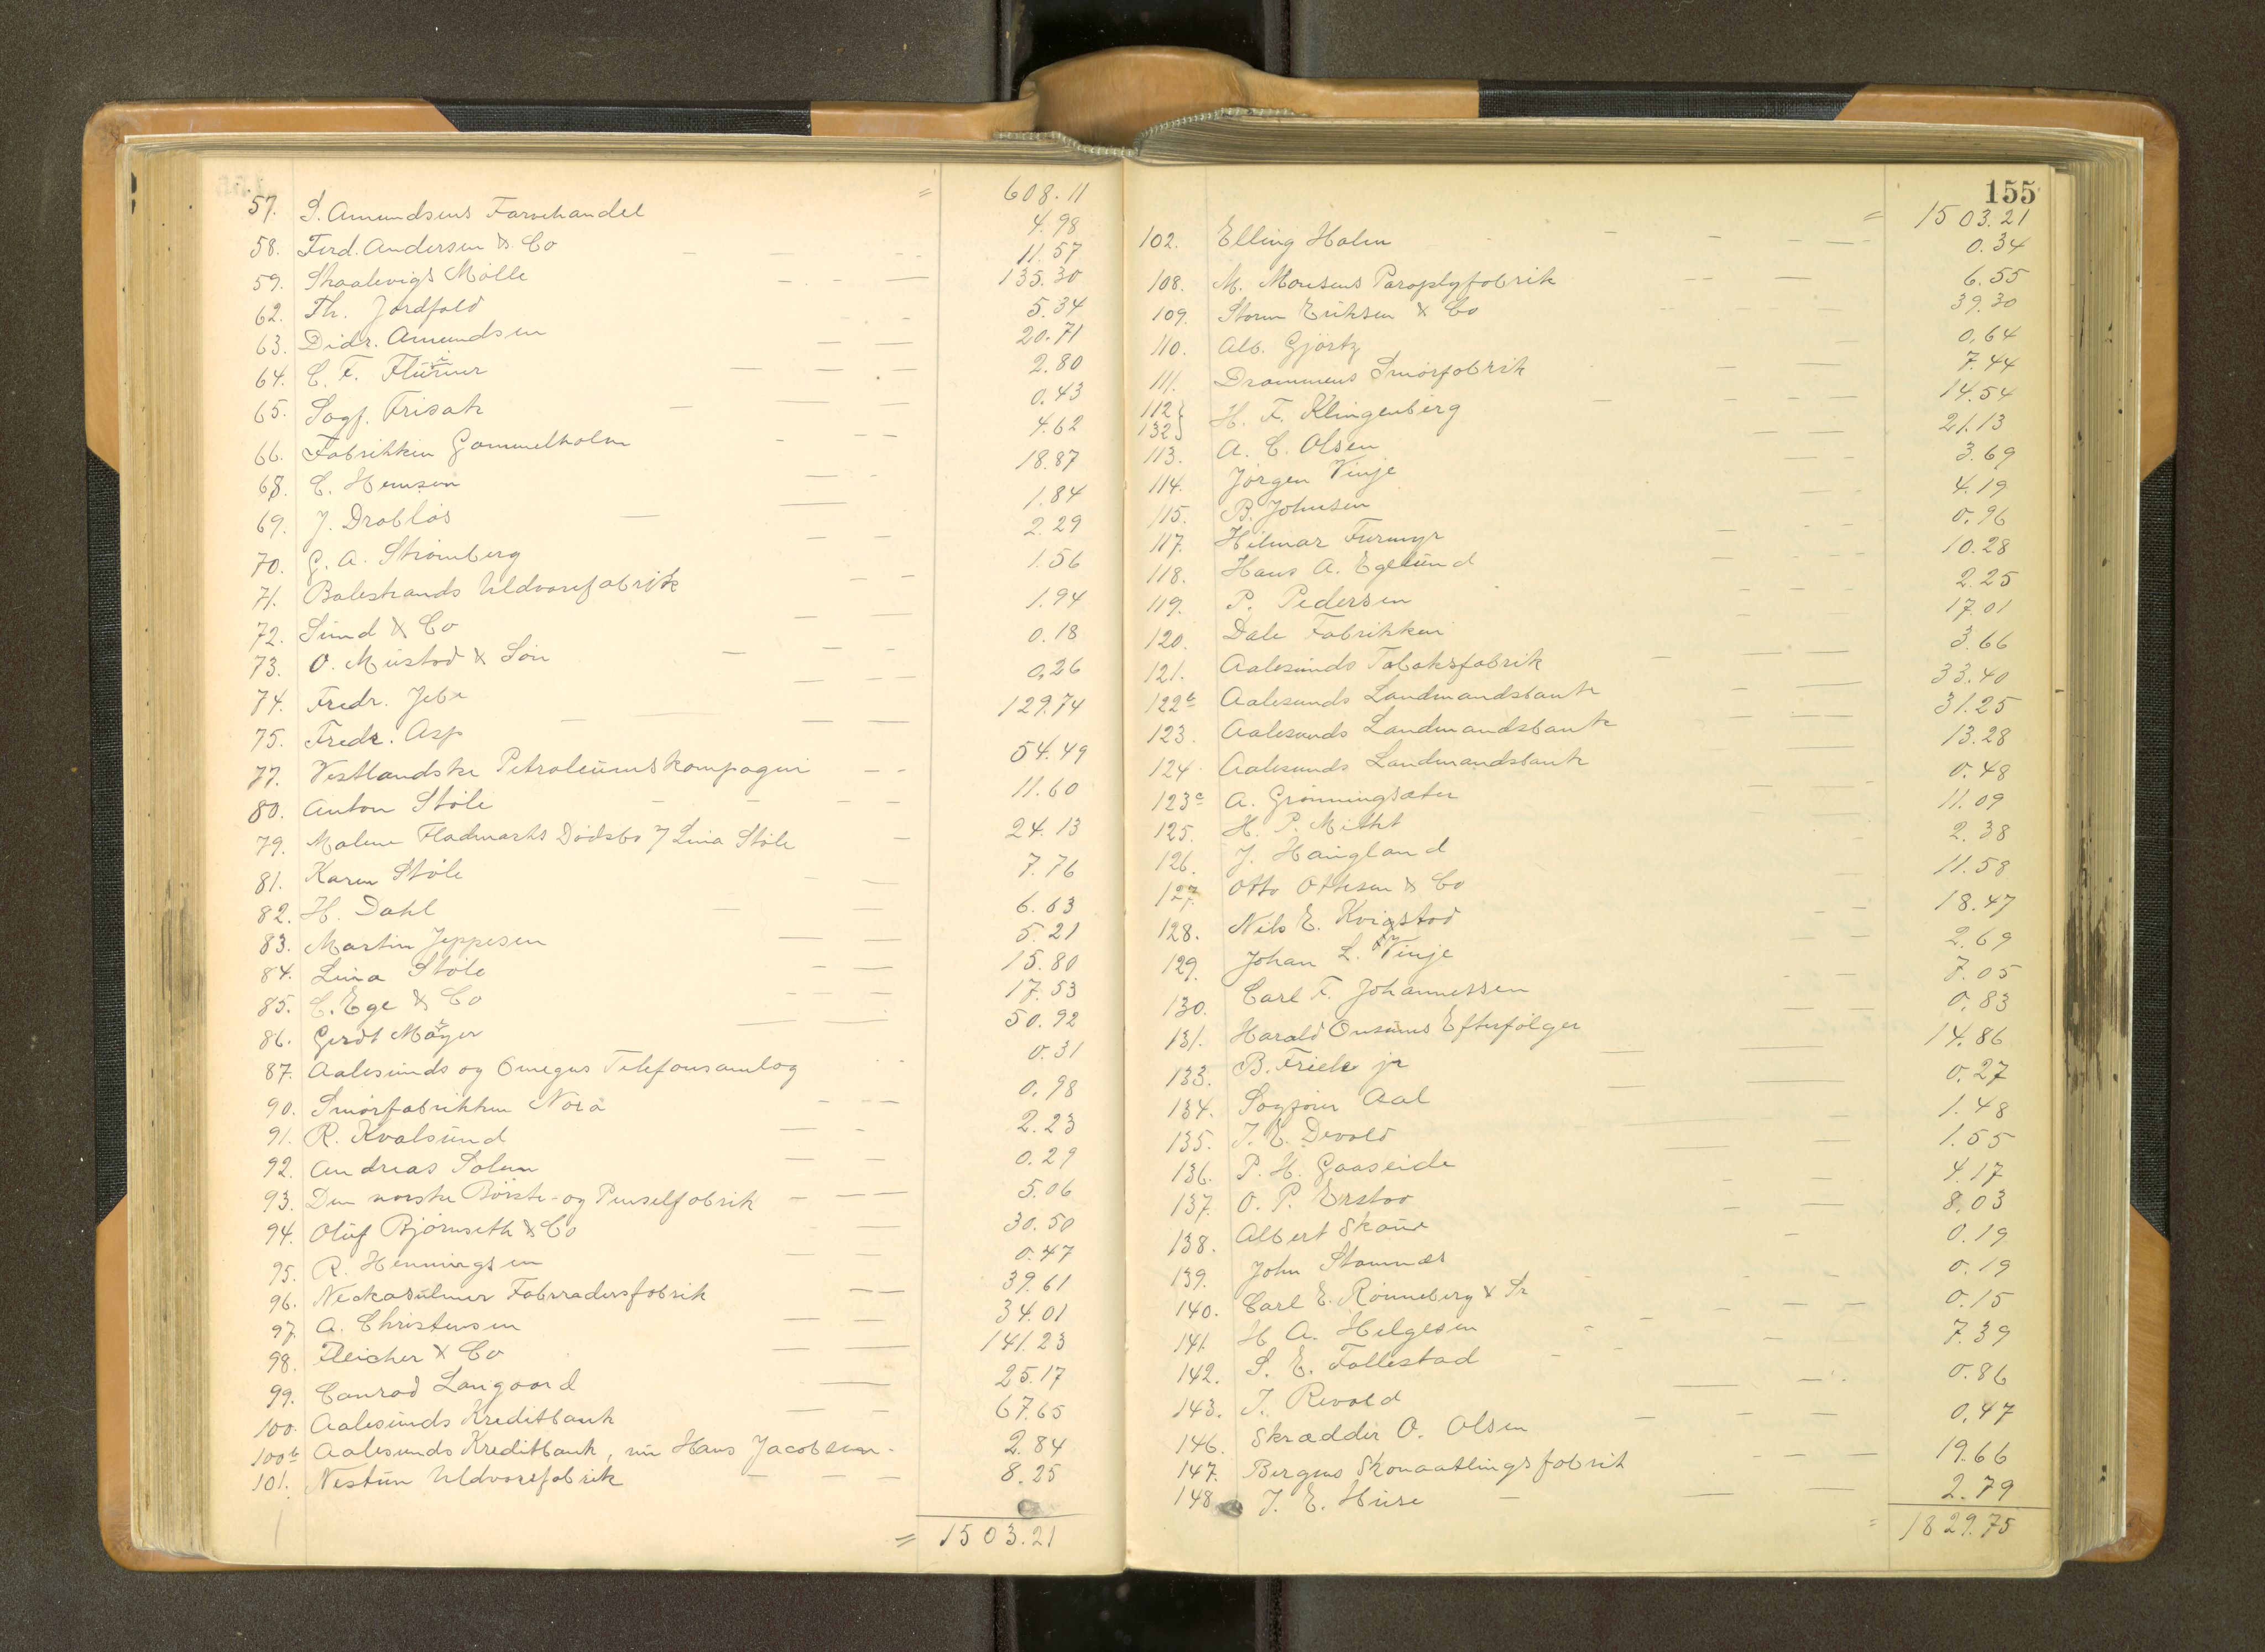 = 608.11
57. S. Amundsens Farvehandel 4.98
58. Ferd. Andersen & Co 11.57
59. Skaalevigs Mølle 135.30
62. Th. Jordfald 5.34
63. Didr. Amundsen 20.71
64. C. F. 2.80
65. Sagf. Frisak 0.43
66. Fabrikken Gammelholm 4.62
68. C. Hemsen 18.87
69. J. Drabløs 1.84
70. G. A. Strømberg 2.29
71. Balestrands Uldvarefabrik 1.56
72. Sund & Co 1.94
73. O. Mustad & Søn 0.18
74. Fredr. Jebe 0,26
75. Fredr. Asp 129.74
77. Vestlandske Petroleumskompagni 54.49
80. Anton Støle 11.60
79. Malene Fladmarks Dødsbo / Lina Støle 24.13
81. Karen Støle 7.76
82. H. Dahl 6.63
83. Martin Jeppesen 5.21
84. Lina Støle 15.80
85. C. Ege & Co 17.53
86. Gerdt Mäyer 50.92
87. Aalesunds og Omegns Telefonsamlag 0.31
90. Smørfabrikken Nora 0.98
91. R. Kvalsund 2.23
92. Andreas Solem 0.29
93. Den norske Børste- og Penselfabrik 5.06
94. Oluf Bjørnseth & Co 30.50
95. R. Henningsen 0.47
96. Neckarsulmer Fahrradersfabrik 39.61
97. A. Christensen 34.01
98. Fleicher & Co 141.23
99. Conrad Langaard 25.17
100. Aalesunds Kreditbank 67.65
100b Aalesunds Kreditbank, nu Hans Jacobsen 2.84
101. Nestun Uldvarefabrik 8.25
= 1503.21
155
= 1503.21
102. Elling Holm 0.34
108. M. Monsens Paraplyfabrik 6.55
109. Storm Eriksen & Co 39.30
110. Alb. Gjørtz 0,64
111. Drammens Smørfabrik 7.44
112} 132} H. F. Klingenberg 14.54
113. A. C. Olsen 21.13
114. Jørgen Vinje 3.69
115. B. Johnsen 4.19
117. Hilmar Furmyr 0.96
118. Hans A. Egelund 10.28
119. P. Pedersen 2.25
120. Dale Fabrikker 17.01
121. Aalesunds Tobaksfabrik 3.66
122b Aalesunds Landmandsbank 33.40
123. Aalesunds Landmandsbank 31.25
124. Aalesunds Landmandsbank 13.28
123c A. Grønningsæter 0.48
125. H. P. 11.09
126. J. Haugland 2.38
127. Otto Ottesen & Co 11.58
128. Nils E. Kvigstad 18.47
129. Johan L. Vinje 2.69
130. Carl F. Johannessen 7.05
131. Harald Onsums Efterfølger 0.83
133. B. Friele jr 14.86
134. Sagfører Aal 0.27
135. J. E. Devold 1.48
136. P. H. Gaaseide 1.55
137. O. P. Erstad 4.17
138. Albert Skaue 8.03
139. John Stamnæs 0.19
140. Carl E. Rønneberg & Sr 0.19
141. H A. Helgesen 0.15
142. S. E. Tallestad 7.39
143. J. Revold 0.86
146. Skrædder O. Olsen 0,47
147. Bergens Skomaatlingsfabrik 19.66
148. J. E. Huse 2.79
= 1829.75